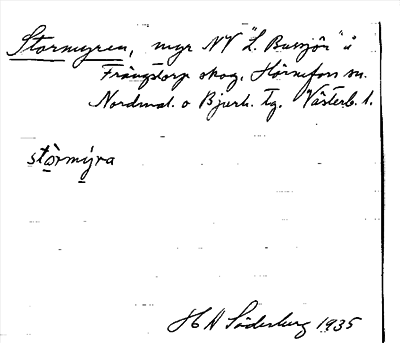 Stormyren, myr NV "L. Bussjön" å
Frängstorp skog, Hörnefors sn.
Nordmal. o Bjurh. tg. Västerb. l.
stòrmýra
H N Söderberg 1935